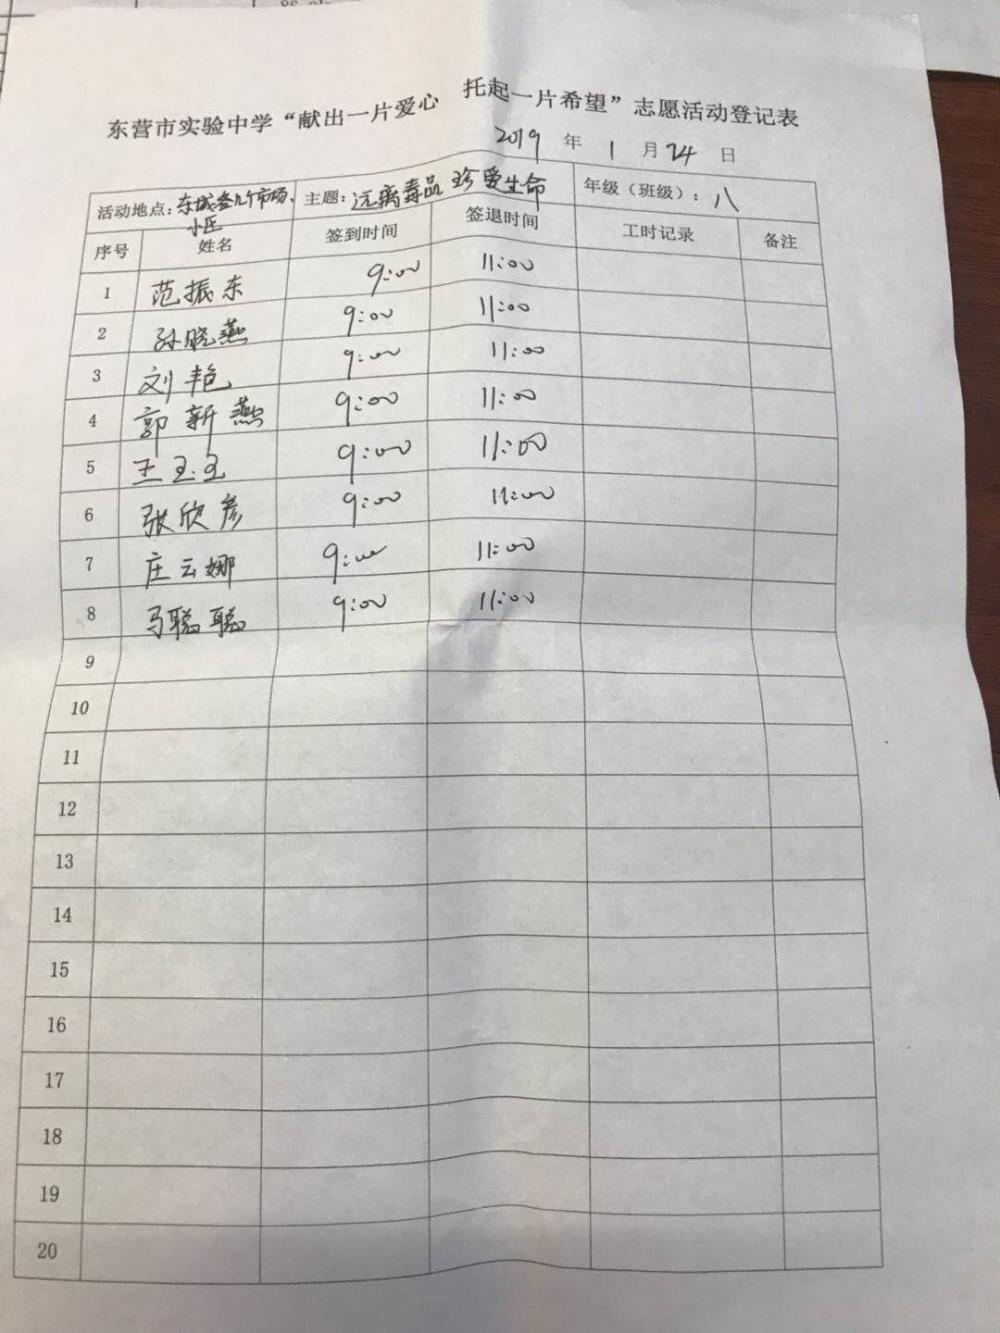 东营市实验中学“献出一片爱心 托起一片希望”志愿活动登记表
2019 年 1 月 24 日
活动地点：东城各几个市场、小区 主题：远离毒品 珍爱生命 年级（班级）：八
序号 姓名 签到时间 签退时间 工时记录 备注
1 范振东 9:00 11:00
2 孙晓燕 9:00 11:00
3 刘艳 9:00 11:00
4 郭新燕 9:00 11:00
5 王玉玉 9:00 11:00
6 张欣彦 9:00 11:00
7 庄云娜 9:00 11:00
8 马聪聪 9:00 11:00
9
10
11
12
13
14
15
16
17
18
19
20